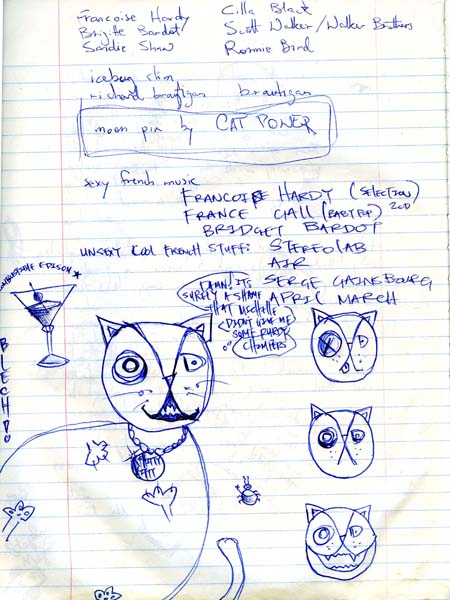 Francoise Hardy
Brigitte Bardot
Sandie Shaw
Cilla Black
Scott Walker/Walker Brothers
Ronnie Bird
iceberg slim
richard brautigan brautigan
moon pix by CAT POWER
sexy french music
FRANCOISE HARDY (SELECTION)
FRANCE GALL (BABY POP) 2CD
BRIDGET BARDOT
UNSEXY Kool FRENCH STUFF: STEREOLAB
AIR
SERGE GAINSBOURG
APRIL MARCH
DAMN! ITS
SURELY A SHAME
THAT MICHELLE
DIDN'T GIVE ME
SOME PURDY
CHOMPERS
EDISON